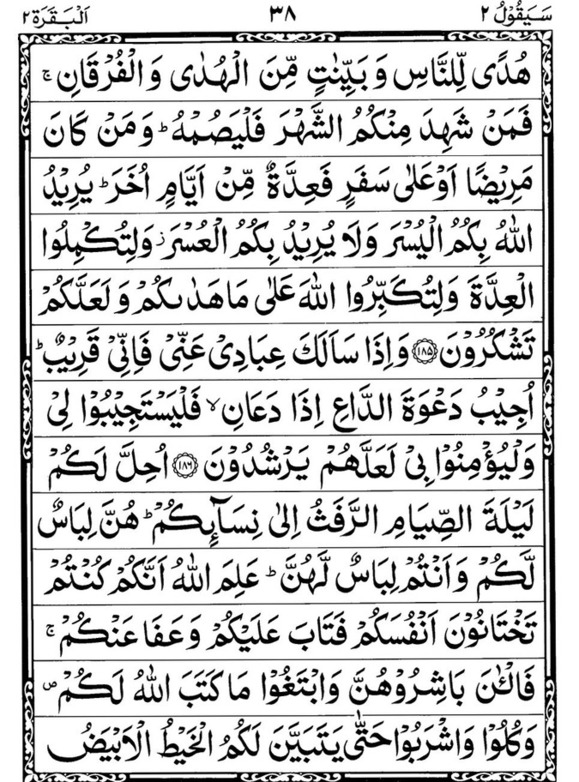 سَيَقُوْلُ ٢ ٣٨ اَلْبَقَرَة ٢
هُدًى لِّلنَّاسِ وَ بَيِّنٰتٍ مِّنَ الْهُدٰى وَ الْفُرْقَانِ ۚ
فَمَنْ شَهِدَ مِنْكُمُ الشَّهْرَ فَلْيَصُمْهُ ؕ وَ مَنْ كَانَ
مَرِيْضًا اَوْ عَلٰى سَفَرٍ فَعِدَّةٌ مِّنْ اَيَّامٍ اُخَرَ ؕ يُرِيْدُ
اللّٰهُ بِكُمُ الْيُسْرَ وَلَا يُرِيْدُ بِكُمُ الْعُسْرَ ز وَلِتُكْمِلُوا
الْعِدَّةَ وَلِتُكَبِّرُوا اللّٰهَ عَلٰى مَا هَدٰىكُمْ وَ لَعَلَّكُمْ
تَشْكُرُوْنَ ﴿١٨٥﴾ وَاِذَا سَاَلَكَ عِبَادِيْ عَنِّيْ فَاِنِّيْ قَرِيْبٌ ؕ
اُجِيْبُ دَعْوَةَ الدَّاعِ اِذَا دَعَانِ ۙ فَلْيَسْتَجِيْبُوْا لِيْ
وَلْيُؤْمِنُوْا بِيْ لَعَلَّهُمْ يَرْشُدُوْنَ ﴿١٨٦﴾ اُحِلَّ لَكُمْ
لَيْلَةَ الصِّيَامِ الرَّفَثُ اِلٰى نِسَآىِٕكُمْ ؕ هُنَّ لِبَاسٌ
لَّكُمْ وَ اَنْتُمْ لِبَاسٌ لَّهُنَّ ؕ عَلِمَ اللّٰهُ اَنَّكُمْ كُنْتُمْ
تَخْتَانُوْنَ اَنْفُسَكُمْ فَتَابَ عَلَيْكُمْ وَ عَفَا عَنْكُمْ ۚ
فَالْـٰٔنَ بَاشِرُوْهُنَّ وَابْتَغُوْا مَا كَتَبَ اللّٰهُ لَكُمْ ص
وَ كُلُوْا وَاشْرَبُوْا حَتّٰى يَتَبَيَّنَ لَكُمُ الْخَيْطُ الْاَبْيَضُ